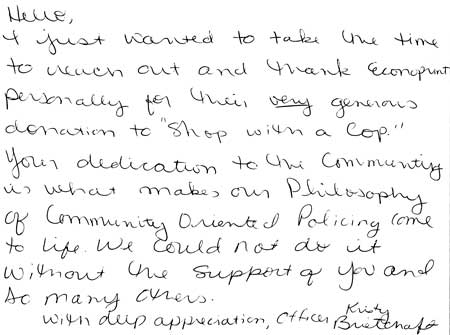 Hello,
I just wanted to take the time
to reach out and thank Econoprint
personally for their very generous
donation to "Shop with a Cop."
Your dedication to the Community
is what makes our Philosophy
of Community Oriented Policing come
to life. We could not do it
without the support of you and
so many others.
with deep appreciation, Officer Kristy